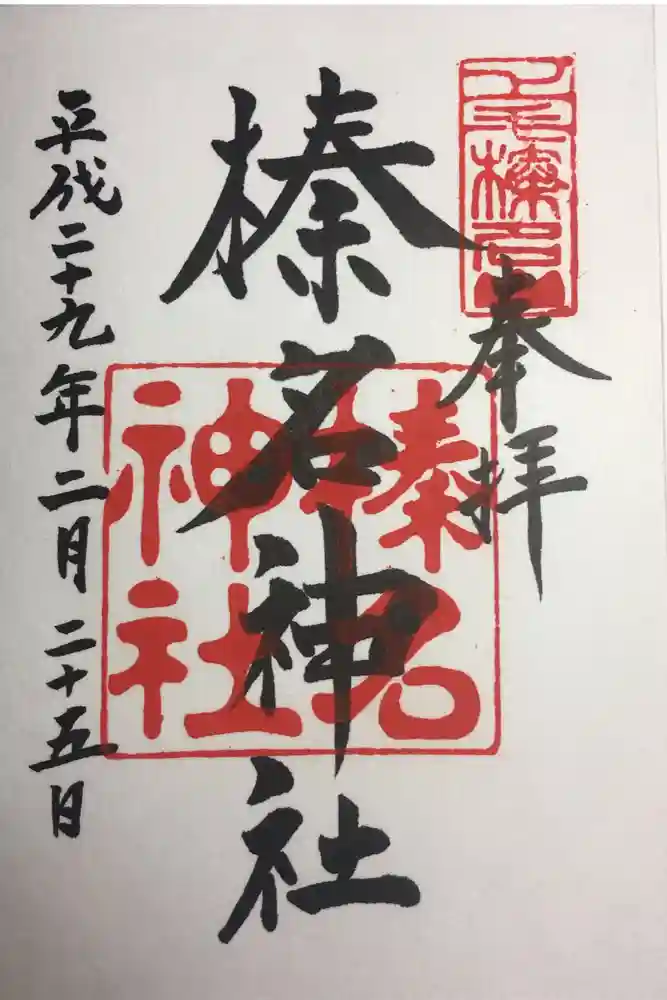 奉拝
榛名神社
平成二十九年二月二十五日
榛名
神社